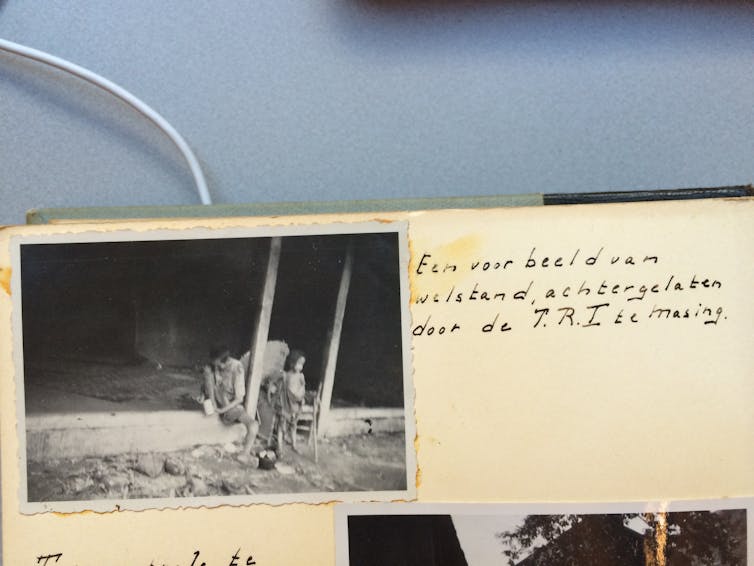 Een voorbeeld van
welstand, achtergelaten
door de T.R.I te Masing.
te